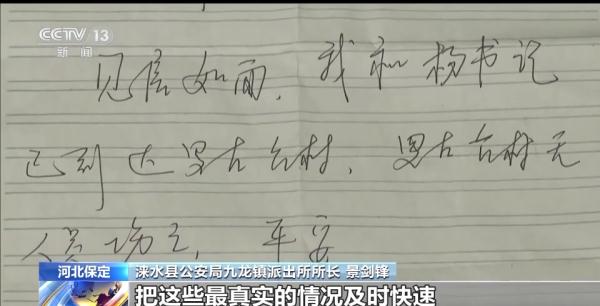 CCTV 13
新闻
见信如面，我和杨书记
已到达罗古台村，罗古台村无
人员伤亡，平安
河北保定
涞水县公安局九龙镇派出所所长 景剑锋
把这些最真实的情况及时快速